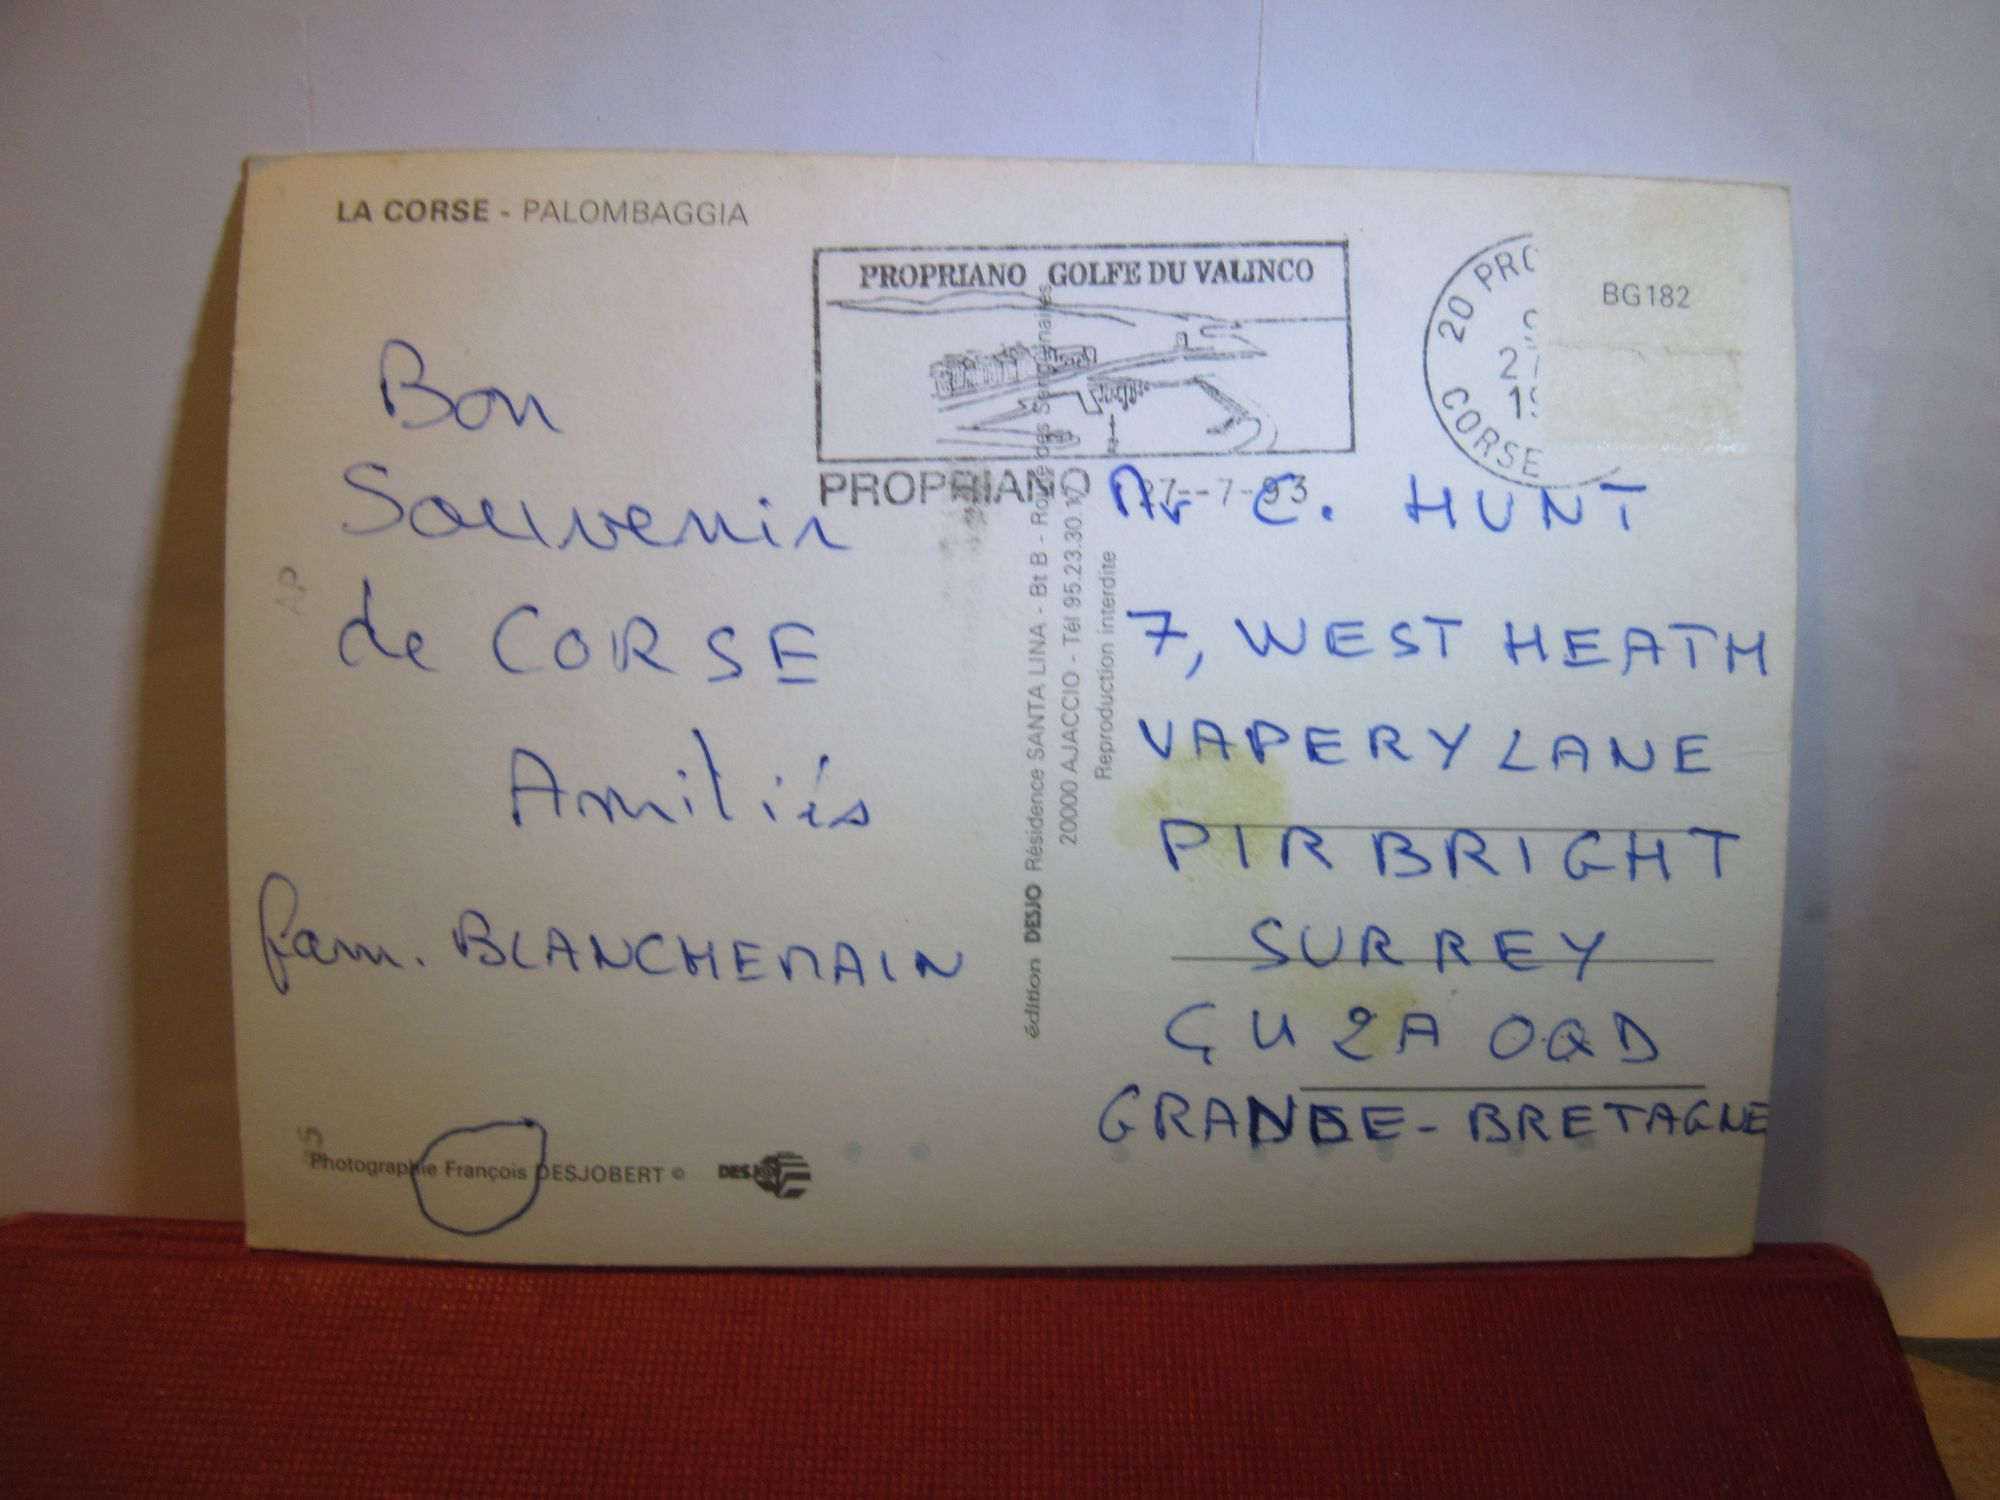 LA CORSE - PALOMBAGGIA
PROPRIANO GOLFE DU VALINCO
PROPRIANO 27--7-93
20 PRO
27
19
CORSE
BG182
Bon
Souvenir
de CORSE
Amitiés
fam. BLANCHEMAIN
AP
édition DESJO Résidence SANTA LINA - Bt B - Route des Sanguinaires
20000 AJACCIO - Tél 95.23.30.17
Reproduction interdite
Mr C. HUNT
7, WEST HEATH
VAPERY LANE
PIRBRIGHT
SURREY
GU 2A OQD
GRANDE-BRETAGNE
Photographie François DESJOBERT ©
DESJO